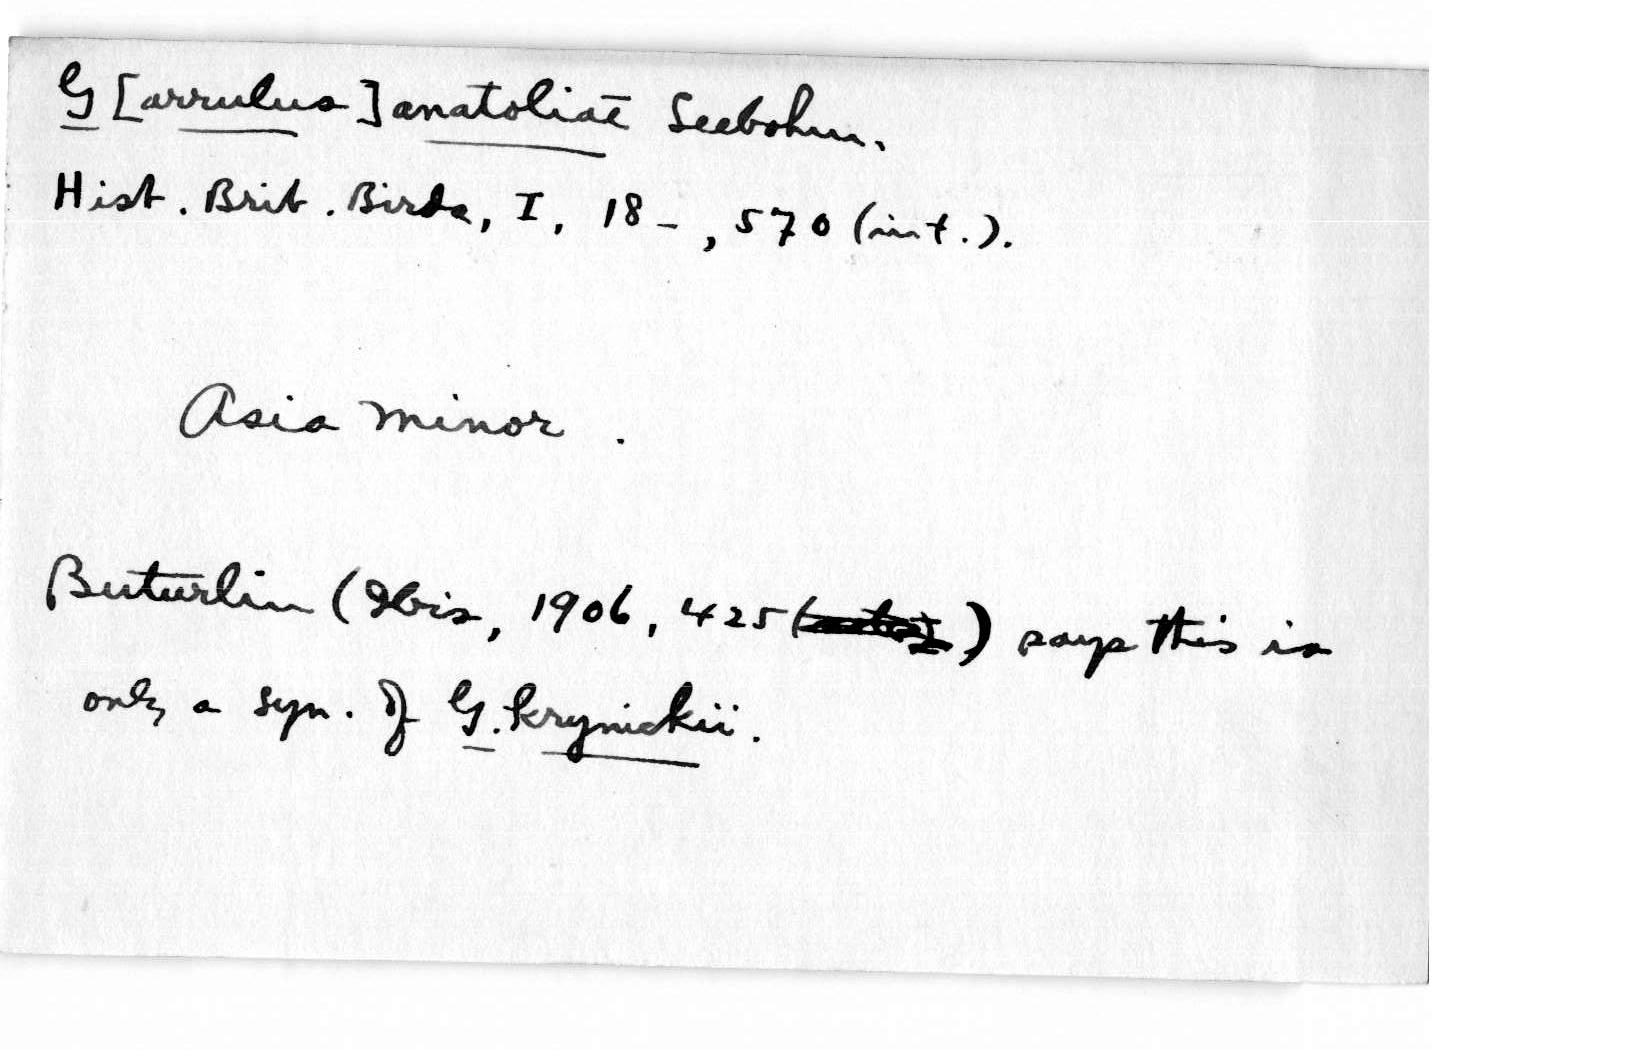 G[arrulus] anatoliae Seebohm.
Hist. Brit. Birds, I, 18-, 570 (int.).
Asia Minor.
Buturlin (Ibis, 1906, 425 ) says this is
only a syn. of G. krynickii.